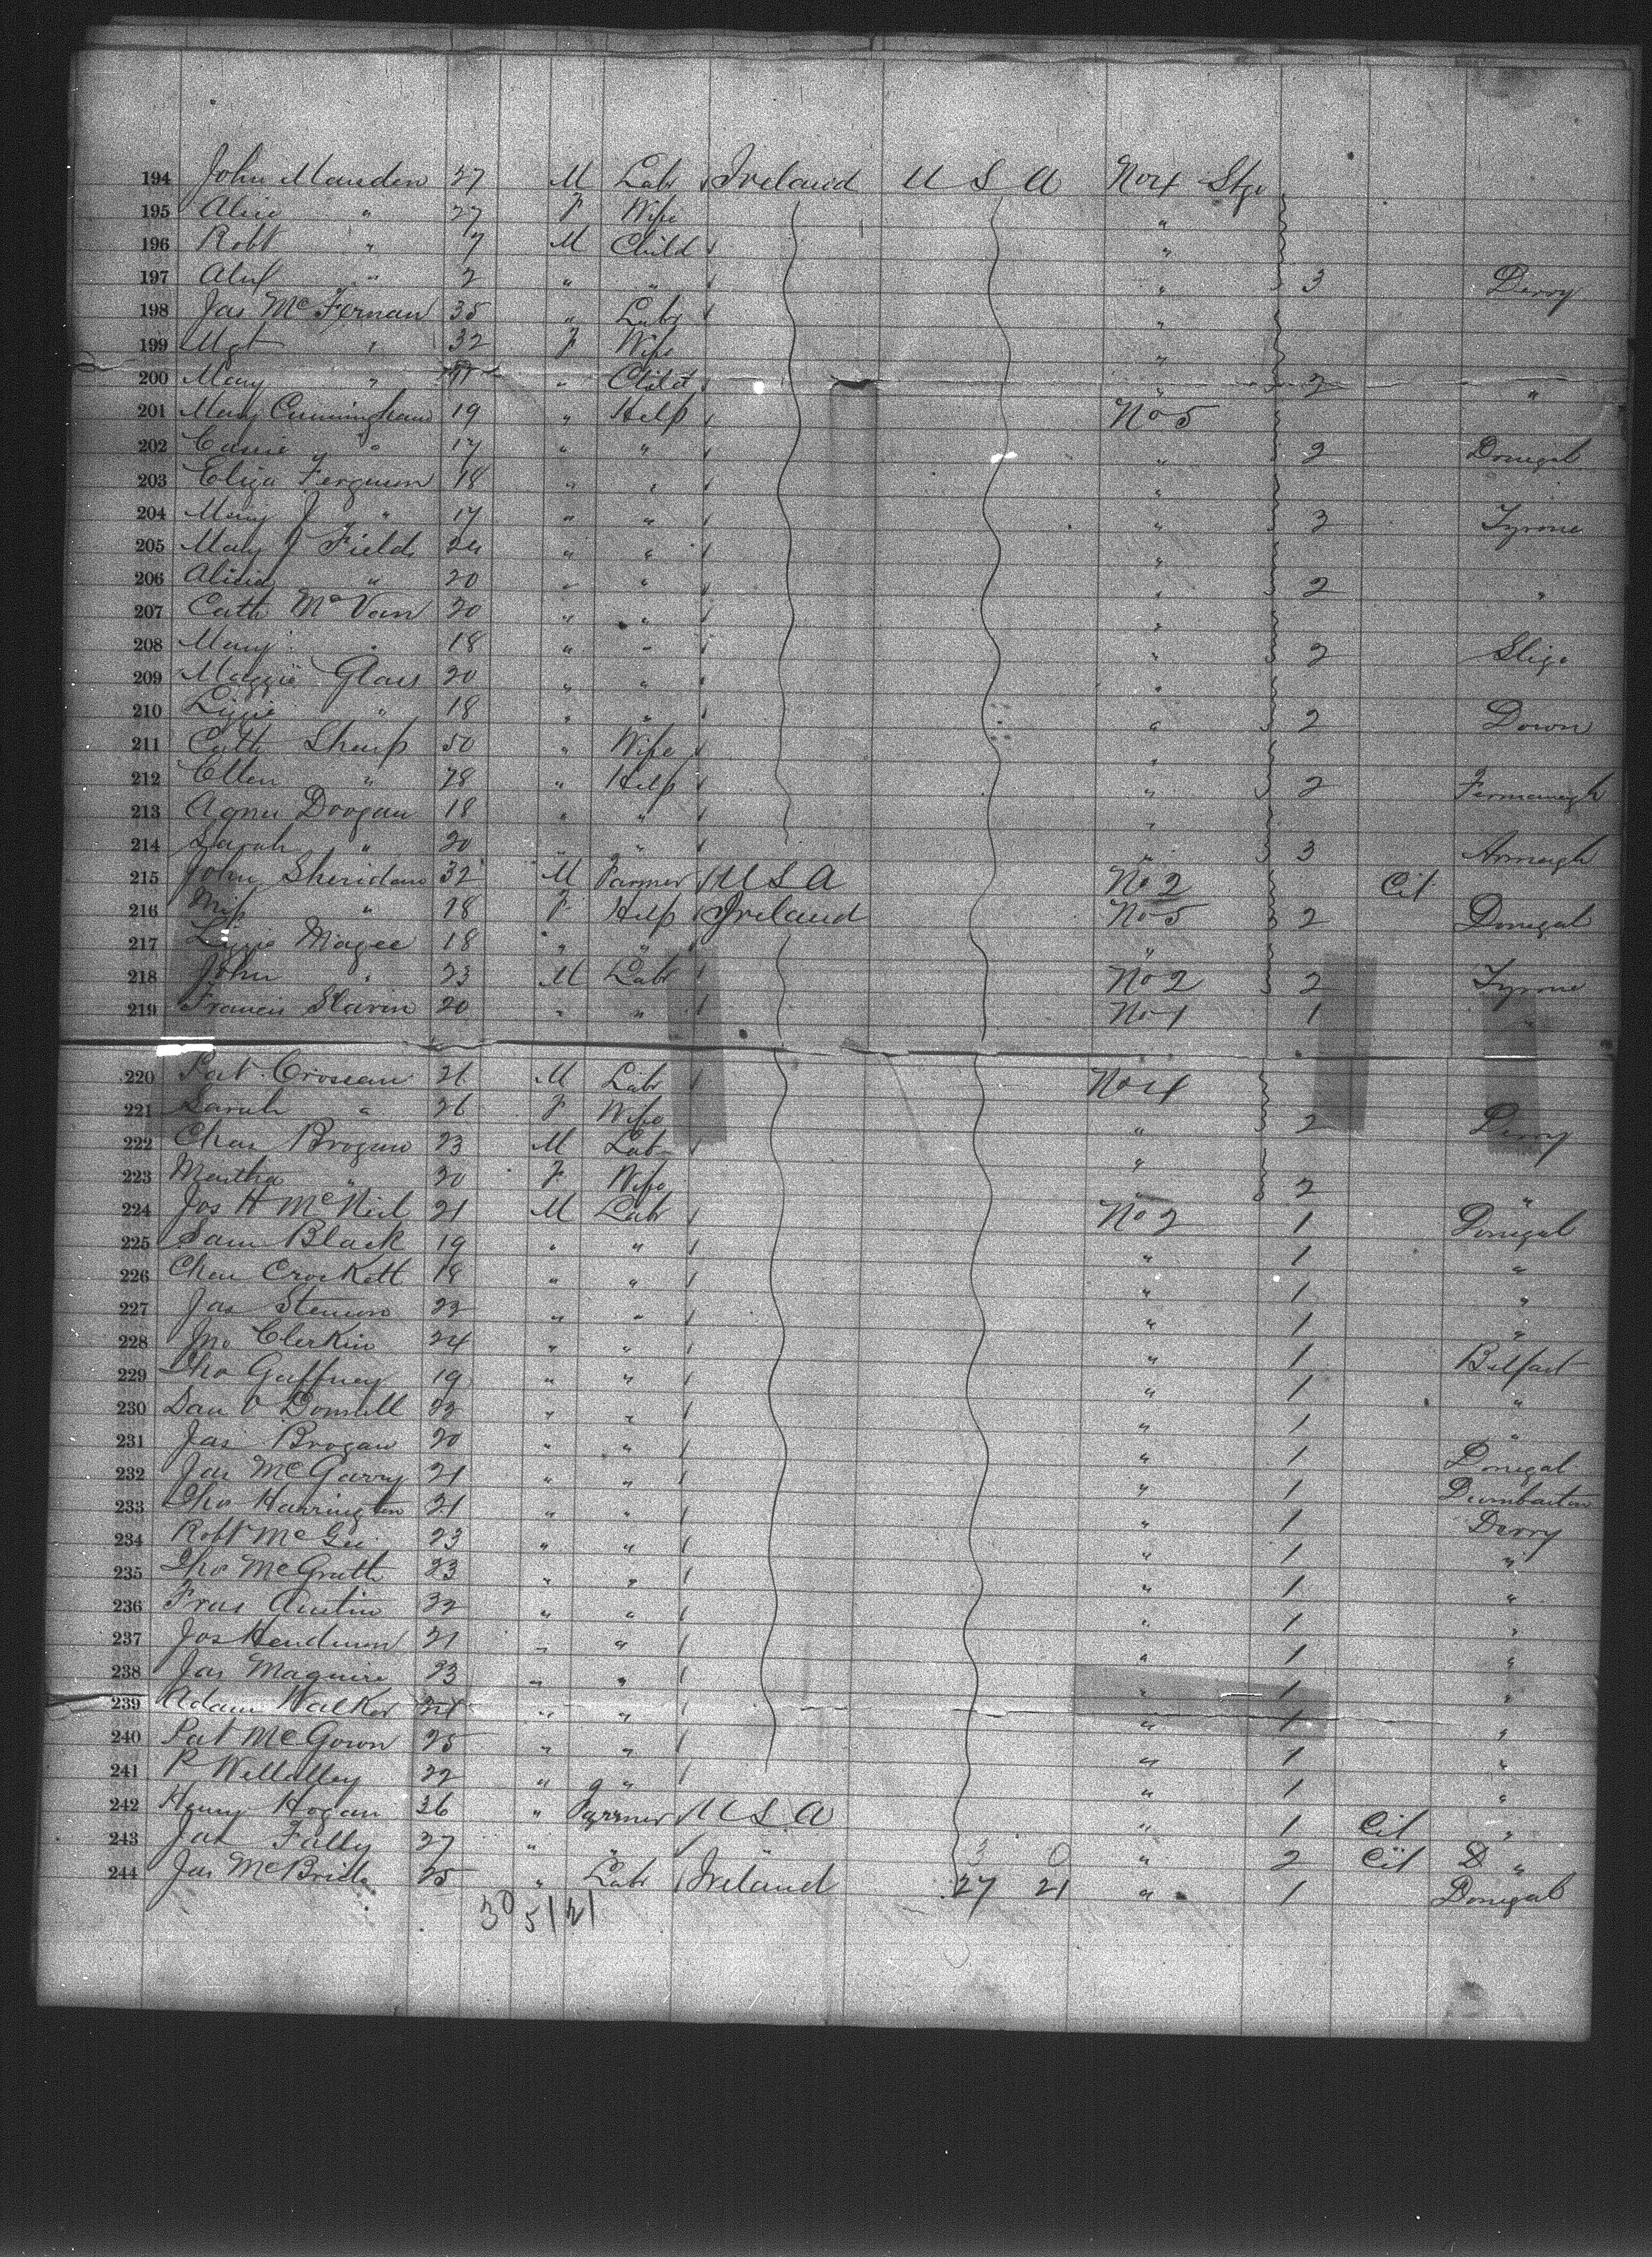 194 John Mauden 27 M Labr Ireland U S A No 4 Stge
195 Alice " 27 F Wife "
196 Robt " 7 M Child "
197 Alex " 2 " " " 3 Derry
198 Jas McFernan 35 " Labr "
199 Mgt " 32 F Wife "
200 Mary " 11 " Child " 2 "
201 Mary Cunningham 19 " Help No 5
202 Cassie " 17 " " " 2 Donegal
203 Eliza Ferguson 18 " " "
204 Mary J " 17 " " " 3 Tyrone
205 Mary J Field 24 " " "
206 Alicia " 20 " " " 2 "
207 Cath McVan 20 " " "
208 Mary " 18 " " " 2 Sligo
209 Maggie Glass 20 " " "
210 Lizzie " 18 " " " 2 Down
211 Cath Sharp 50 " Wife "
212 Ellen " 28 " Help " 2 Fermanagh
213 Agnes Doogan 18 " " "
214 Sarah " 20 " " " 3 Armagh
215 John Sheridan 32 M Farmer U S A No 2 Cit
216 Miss " 18 F Help Ireland No 5 2 Donegal
217 Lizzie Magee 18 " " "
218 John " 23 M Labr No 2 2 Tyrone
219 Francis Slavin 20 " " No 1 1 "
220 Pat Crossan 26 M Labr No 4
221 Sarah " 26 F Wife " 2 Derry
222 Chas Brogan 23 M Labr "
223 Martha " 20 F Wife " 2 "
224 Jos H McNeil 21 M Labr No 2 1 Donegal
225 Sam Black 19 " " " 1 "
226 Chas Crockett 18 " " " 1 "
227 Jas 22 " " " 1 "
228 Jno Clerkin 24 " " " 1 Belfast
229 Tho Gaffney 19 " " " 1 "
230 Dan O Donnell 22 " " " 1 "
231 Jas Brogan 20 " " " 1 Donegal
232 Jas McGarry 21 " " " 1 Dumbarton
233 Tho Harrington 21 " " " 1 Derry
234 Robt McGee 23 " " " 1 "
235 Tho McGrath 23 " " " 1 "
236 Fras Austin 32 " " " 1 "
237 Jos Henderson 21 " " " 1 "
238 Jas Maguire 23 " " " 1 "
239 Adam Walker 24 " " " 1 "
240 Pat McGown 25 " " " 1 "
241 P 22 " " " 1 "
242 Henry Hogan 36 " Farmer U S A " 1 Cit "
243 Jas Fally 27 " " 3 0 " 2 Cit D "
244 Jas McBride 25 " Labr Ireland 27 21 " 1 Donegal
30 51 21